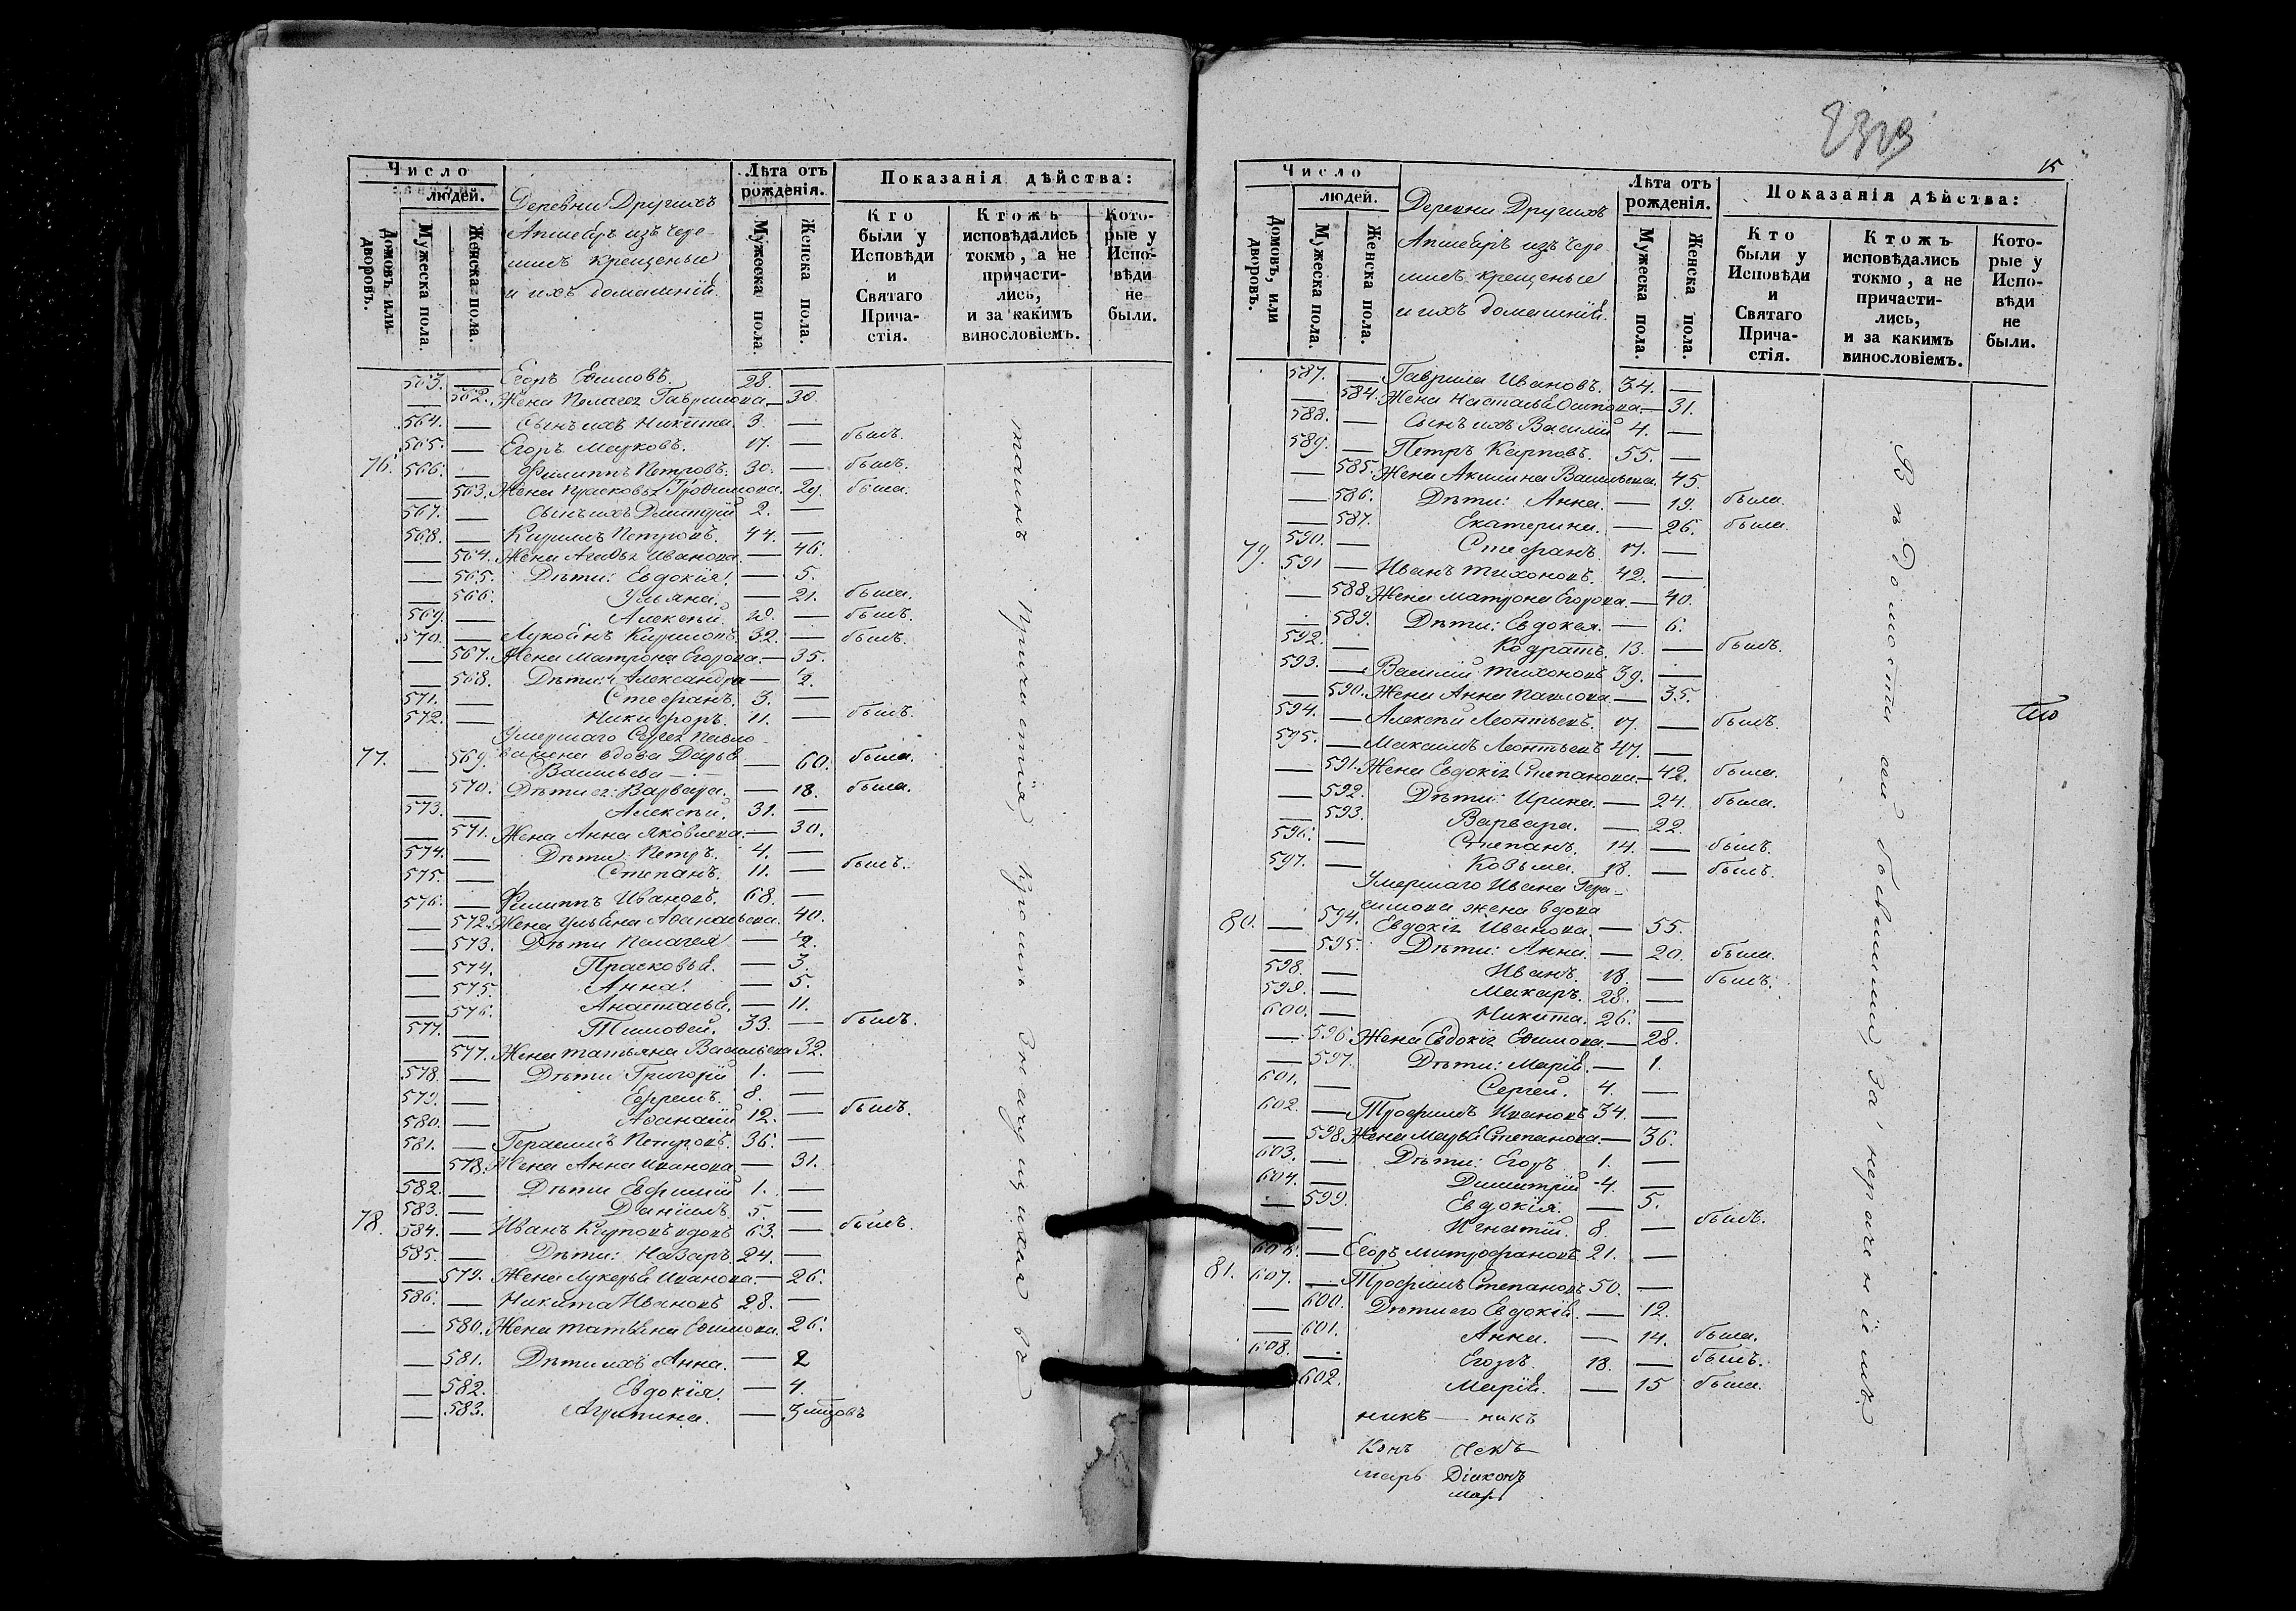 Число
людей.
Домовъ или дворовъ.
Мужеска пола.
Женска пола.
Деревни Другихъ
Апшебръ изъ чере-
мисъ крещеные
и ихъ домашнiй.
Лѣта отъ рожденія.
Мужеска пола.
Женска пола.
Показанія дѣйства:
Кто были у Исповѣди и Святаго Прича-стія.
Ктожъ исповѣдались токмо, а не причасти-лись, и за какимъ винословіемъ.
Кото-рые у Испо-вѣди не были.
563. — Егоръ Ефимовъ. 28. —
— 562. Жена Пелагея Гаврилова — 30
564. — Сынъ ихъ Никита 3. —
565. — Егоръ 17. — былъ.
76. 566. — Филиппъ Петровъ. 30. — былъ.
— 563. Жена Прасковья Трофимова. 29. была.
567. — Сынъ ихъ Дмитрій 2. —
568. — Кирилъ Петровъ. 44. —
— 564. Жена Агафья Иванова. — 46.
— 565. Дѣти: Евдокія. — 5.
— 566. Ульяна. — 21. была.
569. — Алексѣй. — былъ.
570. — Кириловъ. 32. — былъ.
— 567. Жена Матрона Егорова. — 35.
— 568. Дѣти: Александра — ½.
571. — Стефанъ. 3. —
572. — Никифоръ. 11. — былъ.
Умершаго Сергея Павло-
77. — 569. ва жена вдова Дарья — 60. была.
Васильева —
— 570. Дѣти ея: Варвара. — 18. была.
573. — Алексѣй. 31. —
— 571. Жена Анна Яковлева. — 30.
574. — Дѣти: Петръ. 4. —
575. — Степанъ. 11. — былъ.
576. — Филиппъ Ивановъ. 68. —
— 572. Жена Ульяна Афанасьева. 40.
— 573. Дѣти Пелагея — ½.
— 574. Прасковья. — 3.
— 575. Анна. — 5.
— 576. Анастасья. — 11.
577. — Тимофей. 33. — былъ.
— 577. Жена Татьяна Васильева 32.
578. — Дѣти Григорій 1. —
579. — Ефремъ. 8. —
580. — Афанасій 12. — былъ.
581. — Герасимъ Петровъ. 36. —
— 578. Жена Анна Иванова — 31.
582. — Дѣти Евфимій 1. —
583. — Даніилъ 5. —
78. 584. — Иванъ Карповъ вдовъ 63. — былъ.
585. — Дѣти: Назаръ. 24. —
— 579. Жена Лукерья Иванова — 26.
586. — Никита Ивановъ 28. —
— 580. Жена Татьяна Ефимова. 26.
— 581. Дѣти ихъ Анна. — 2
— 582. Евдокія. — 4.
— 583. Агрипина. — 3 мѣсяцовъ
таинъ причастія, кромѣ значущихся въ
15
Число
людей.
Домовъ, или дворовъ.
Мужеска пола.
Женска пола.
Деревни Другихъ
Апшебръ изъ чере-
мисъ крещеные
и ихъ домашнiй.
Лѣта отъ рожденія.
Мужеска пола.
Женска пола.
Показанія дѣйства:
Кто были у Исповѣди и Святаго Прича-стія.
Ктожъ исповѣдались токмо, а не причасти-лись, и за какимъ винословіемъ.
Кото-рые у Испо-вѣди не были.
587. — Гаврила Ивановъ. 34. —
— 584. Жена Настасья Осипова — 31.
588. — Сынъ ихъ Василій 4. —
589. — Петръ Карповъ. 55. —
— 585. Жена Акилина Васильева. 45.
— 586. Дѣти: Анна. — 19. была.
— 587. Екатерина. — 26. была.
590. — Стефанъ. 17. —
79. 591 — Иванъ Тихоновъ. 42. —
— 588. Жена Матрона Егорова — 40.
— 589. Дѣти: Евдокея. — 6.
592. — Кодратъ. 13. — былъ.
593. — Василій Тихоновъ 39. —
— 590. Жена Анна Павлова — 35.
594. — Алексѣй Леонтьевъ. 17. — былъ.
595. — Максимъ Леонтьевъ 47. —
— 591. Жена Евдокія Степанова — 42. была.
— 592. Дѣти: Ирина. — 24. была.
— 593. Варвара. — 22.
596. — Степанъ. 14. — былъ.
597. — Козьма. 18. — былъ.
Умершаго Ивана Гера-
симова жена вдова
80. — 594. Евдокія Иванова. — 55.
— 595. Дѣти: Анна. — 20. была.
598. — Иванъ. 18. — былъ.
599. — Макаръ. 28. —
600. — Никита. 26. —
— 596 Жена Евдокія Ефимова. — 28.
— 597. Дѣти: Марія. — 1.
601. — Сергей. 4. —
602. — Трофимъ Ивановъ 34. —
— 598. Жена Марья Степанова — 36.
603. — Дѣти: Егоръ 1. —
604. — Димитрій 4. —
— 599. Евдокія. — 5.
— Игнатій. 8. — былъ.
606. — Егоръ Митрофановъ. 21. —
81. 607. — Трофимъ Степановъ 50. —
— 600. Дѣти его Евдокія. — 12.
— 601. Анна. — 14. была.
608. — Егоръ. 18. — былъ.
602. Марія. — 15 была.
никъ — никъ
Діаконъ
Мар
Вѣдомости сей бывшими за нерачениемъ